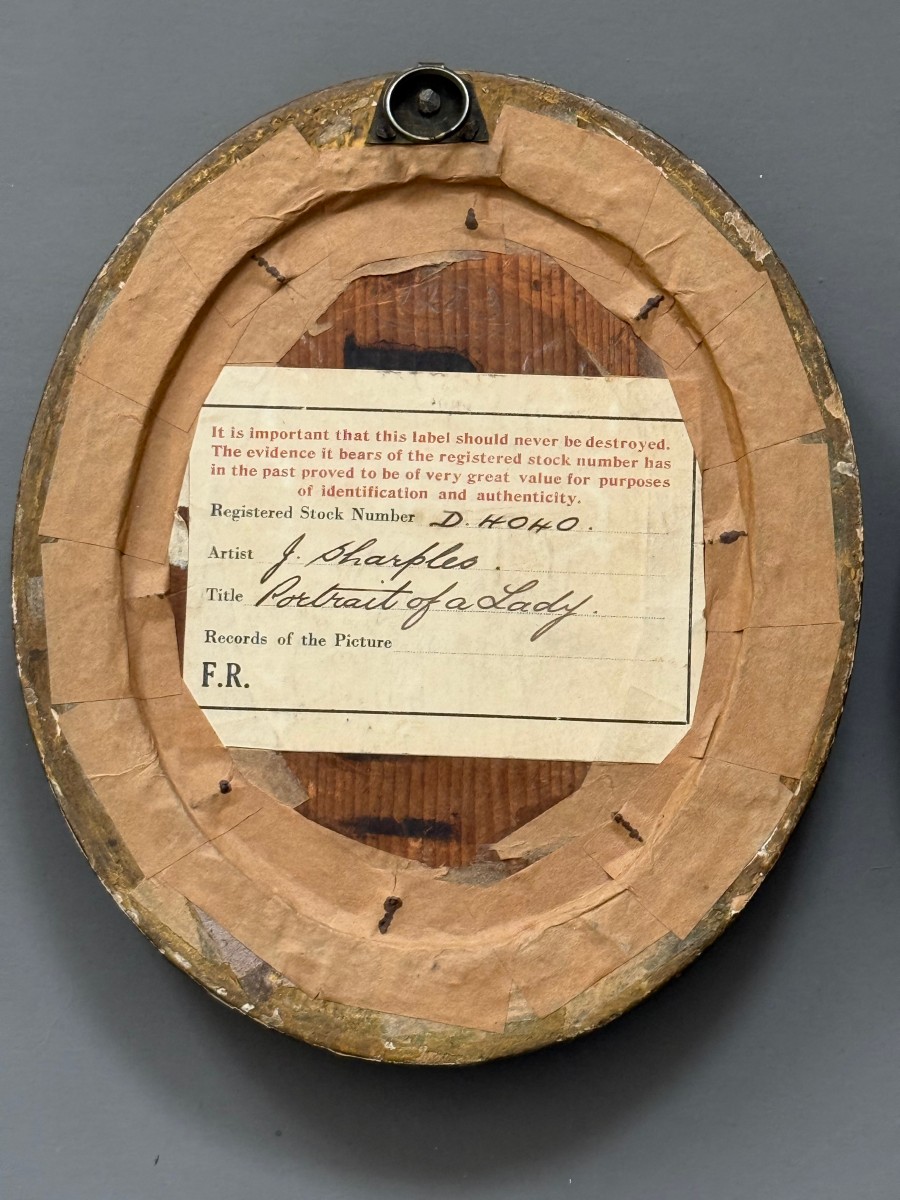 It is important that this label should never be destroyed.
The evidence it bears of the registered stock number has
in the past proved to be of very great value for purposes
of identification and authenticity.
Registered Stock Number D. 4040.
Artist J. Sharples.
Title Portrait of a Lady.
Records of the Picture
F.R.